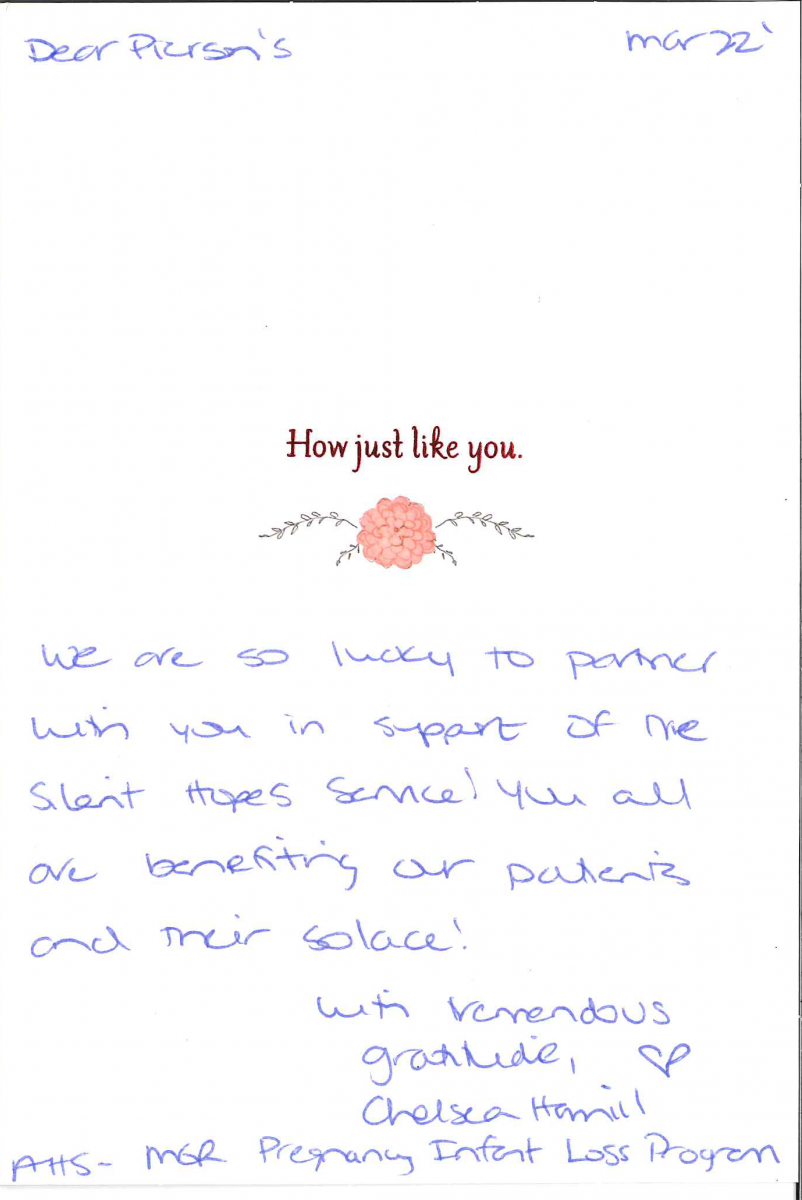 Dear Pierson's mar 22'
How just like you.
We are so lucky to partner
with you in support of the
Silent Hopes Service! You all
are benefiting our patients
and their solace!
With tremendous
gratitude, ♡
Chelsea Hamill
AHS- MGR Pregnancy Infant Loss Program